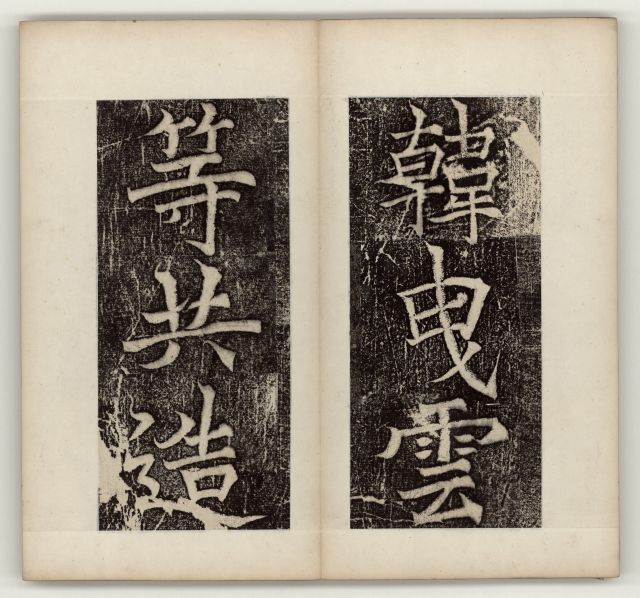 韓曳雲
等共造